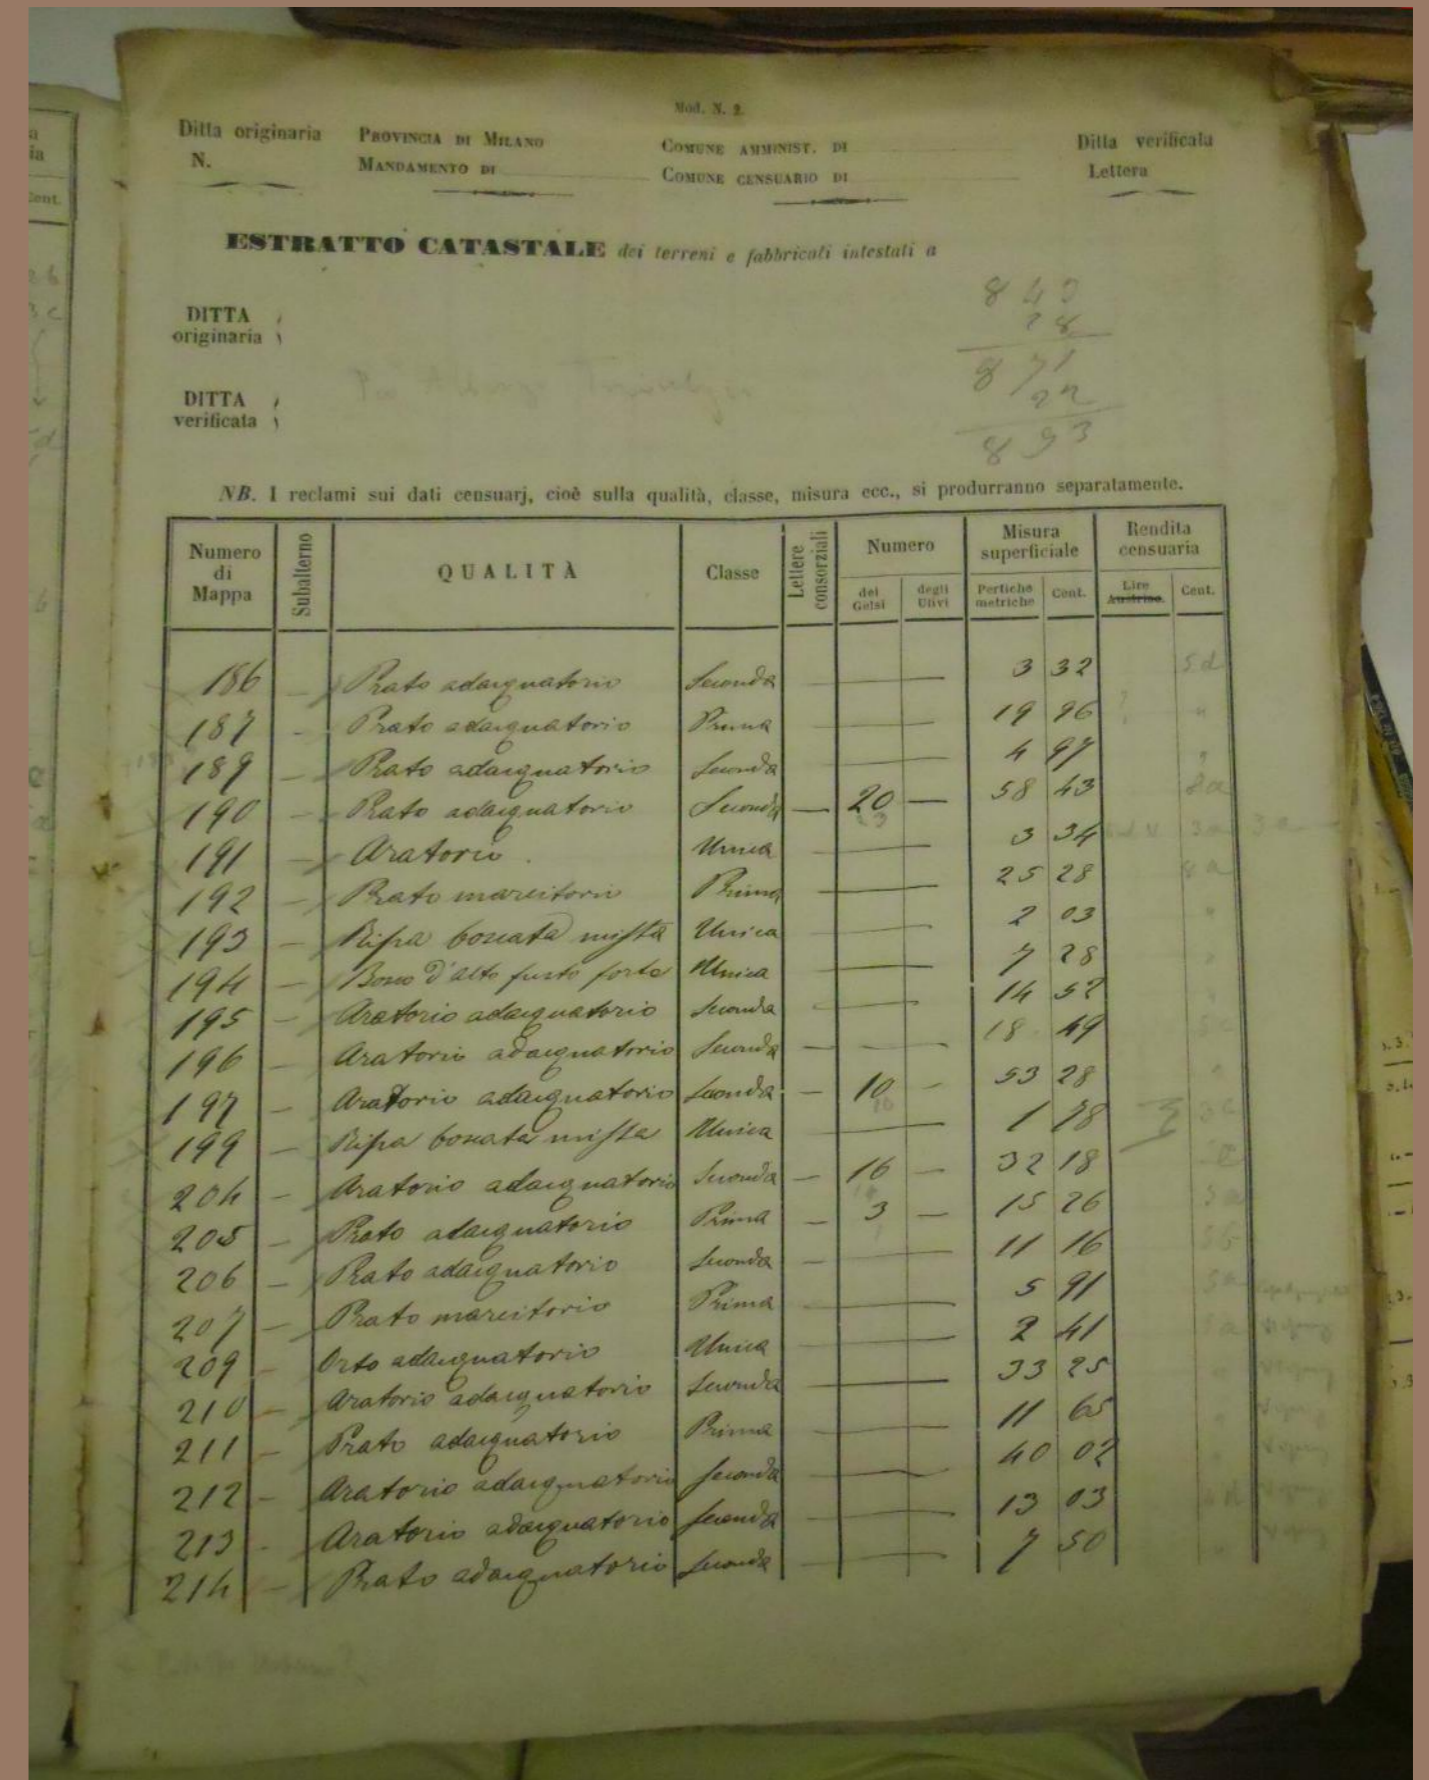 Mod. N. 2.
Ditta originaria PROVINCIA DI MILANO COMUNE AMMINIST. DI Ditta verificata
N. MANDAMENTO DI COMUNE CENSUARIO DI Lettera
ESTRATTO CATASTALE dei terreni e fabbricati intestati a
843
28
DITTA
originaria
871
22
DITTA
verificata
893
NB. I reclami sui dati censuarj, cioè sulla qualità, classe, misura ecc., si produrranno separatamente.
Numero di Mappa Subalterno QUALITÀ Classe Lettere consorziali Numero Misura superficiale Rendita censuaria
dei Gelsi degli Ulivi Pertiche metriche Cent. Lire Austriac. Cent.
186 — Prato adacquatorio Seconda — 3 32 5d
187 - Prato adacquatorio Prima — 19 96 "
189 — Prato adacquatorio Seconda — 4 97 "
190 — Prato adacquatorio Seconda — 20 — 58 43 8a
191 — Aratorio. Unica — 3 34
192 — Prato marcitorio Prima — 25 28
193 — Ripa boscata mista Unica — 2 03 "
194 — Bosco d'alto fusto forte Unica — 7 28 "
195 — Aratorio adacquatorio Seconda — 14 52
196 — Aratorio adacquatorio Seconda — 18 49
197 — Aratorio adacquatorio Seconda — 10 — 53 28
199 — Ripa boscata mista Unica — 1 78
204 — Aratorio adacquatorio Seconda — 16 — 32 18
205 — Prato adacquatorio Prima — 3 — 15 26
206 — Prato adacquatorio Seconda — 11 16
207 — Prato marcitorio Prima — 5 91
209 — Orto adacquatorio Unica — 2 41
210 — Aratorio adacquatorio Seconda — 33 25
211 — Prato adacquatorio Prima — 11 65
212 — Aratorio adacquatorio Seconda — 40 02
213 - Aratorio adacquatorio Seconda — 13 03
214 — Prato adacquatorio Seconda — 7 50